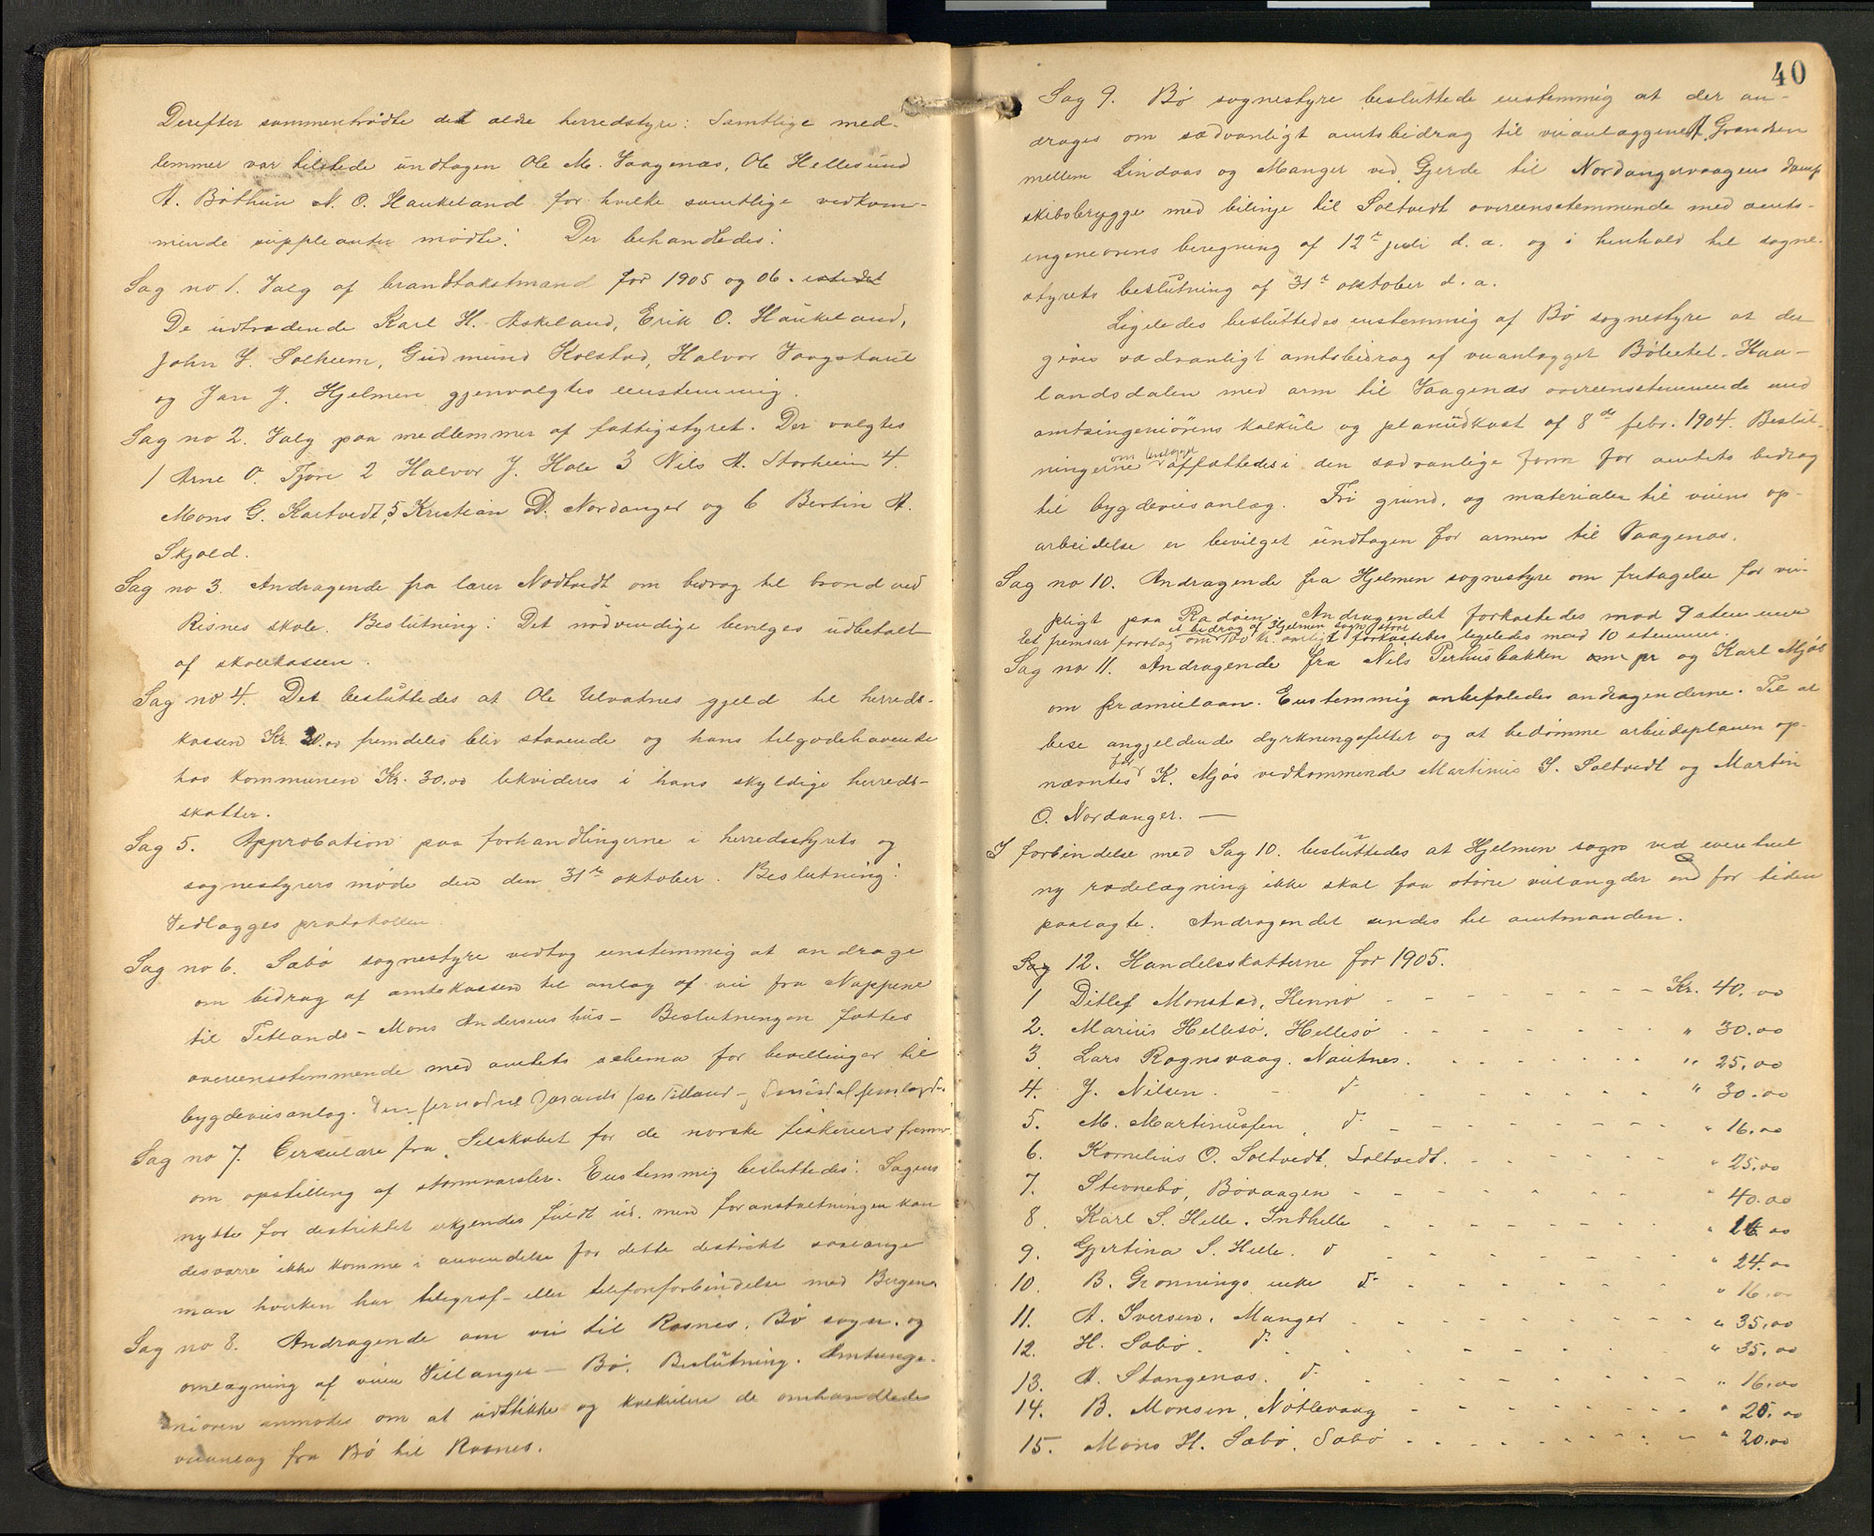 Derefter sammentrådte det ældre herredstyre: Samtlige med-
lemmer var tilstede undtagen Ole M. Vaagenæs, Ole Hellesund
A. Bøthun N. O. Haukeland for hvilke samtlige vedkom-
mende suppleanter mødte. Der behandledes:
Sag no 1. Valg af brandtakstmænd for 1905 og 06.
De udtrædende Karl H. Askeland, Erik O. Haukeland,
John J. Solheim, Gudmund Kolstad, Halvor Vaagstaul
og Jan J. Hjelmen gjenvalgtes eenstemmig.
Sag no 2. Valg paa medlemmer af fattigstyret. Der valgtes
1 Arne O. Fjøre 2 Halvor J. Hole 3 Nils A. Storheim 4.
Mons G. Kartvedt, 5 Kristian D. Nordanger og 6 Bertin A.
Skjold.
Sag no 3. Andragende fra lærer Nødtvedt om bidrag til brønd ved
Risnes skole. Beslutning: Det nødvendige beviges udbetalt
af skolekassen.
Sag no 4. Det besluttedes at Ole Ulvatnes gjeld til herreds-
kassen Kr. fremdeles blir staaende og hans tilgodehavende
hos kommunen Kr. 30.00 likvideres i hans skyldige herreds-
skatter.
Sag 5. Approbation paa forhandlingerne i herredsstyrets og
sognestyrers møde den den 31te oktober. Beslutning:
Vedlægges protokollen.
Sag no 6. Sæbø sognestyre vedtog eenstemmig at andrage
om bidrag af amtskassen til anlæg af vei fra Nappene
til Tetlands - Mons Andersens hus - Beslutningen fattes
overensstemmende med amtets schema for bevillinger til
bygdeveisanlæg.
Sag no 7. Circulære fra Selskabet for de norske fiskeriers fremme
om opstilling af stormvarsler. Eenstemmig besluttedes: Sagens
nytte for destriktet erkjendes fuldt ud, men foranstaltningen kan
desværre ikke komme i anvendelse for dette destrikt saalænge
man hverken har telegraf- eller telefonforbindelse med Bergen.
Sag no 8. Andragende om vei til Rosnes, Bø sogn, og
omlægning af veien Villanger - Bø. Beslutning. Amtsinge-
niøren anmodes om at udstikke og kalkulere de omhandlede
veianlæg fra Bø til Rosnes.
40
Sag 9. Bø sognestyre besluttede eenstemmig at der an-
drages om sædvanligt amtsbidrag til veianlæggene Grændsen
mellem Lindaas og Manger ved Gjerde til Nordangervaagens damp
skibsbrygge med bilinje til Soltvedt overeensstemmende med amts-
ingeneørens beregning af 12te juli d. a. og i henhold til sogne-
styrets beslutning af 31te oktober d. a.
Ligeledes besluttedes eenstemmig af Bø sognestyre at der
gives sædvanligt amtsbidrag af veianlægget Bøleitet - Haa-
landsdalen med arm til Vaagenæs overeensstemmende med
amtsingeniørens kalkule og planudkast af 8de febr. 1904. Beslut-
ningerne affattedes i den sædvanlige form for amtets bidrag
til bygdeveisanlæg. Fri grund, og materialer til veiens op-
arbeidelse er bevilget undtagen for armen til Vaagenæs.
Sag no 10. Andragende fra Hjelmen sognestyre om fritagelse for vei-
pligt paa Radøen. Andragendet forkastedes mod 9 stemmer
et bidrag af Hjelmen sogn stort
Et fremsat forslag om 100 kr. aarligt forkastedes ligeledes mod 10 stemmer.
Sag no 11. Andragende fra Nils Perhusbakken og Karl Mjøs
om præmielaan. Eenstemmig anbefaledes andragenderne. Til at
bese angjeldende dyrkningsfelter og at bedømme arbeidsplanen op-
nævntes for K. Mjøs vedkommende Martinus S. Soltvedt og Martin
O. Nordanger. —
I forbindelse med Sag 10. besluttedes at Hjelmen sogn ved eventuel
ny rodelægning ikke skal faa større veilængder end for tiden
paalagte. Andragendet sendes til amtmanden.
Sag 12. Handelsskatterne for 1905.
1 Ditlef Monstad, Hennø - - - Kr. 40.00
2. Marius Hellesø. Hellesø - - - " 30.00
3. Lars Rognsvaag. Nautnes. - - - " 25.00
4. J. Nilsen. - do - - - " 30.00
5. M. Martinussen, do - - - " 16.00
6. Kornelius O. Soltvedt, Soltvedt. - - - " 25.00
7. Stevnebø, Bøvaagen - - - " 40.00
8. Karl S. Helle. Indhelle - - - " 16.00
9. Gjertina S. Helle. do - - - " 24.00
10. B. Grønnings enke do - - - " 16.00
11. A. Iversen. Manger - - - " 35.00
12. H. Sæbø. do - - - " 35.00
13. A. Stangenæs. do - - - " 16.00
14. B. Monsen, Nøtlevaag - - - " 20.00
15. Mons H. Sæbø. Sæbø - - - " 20.00